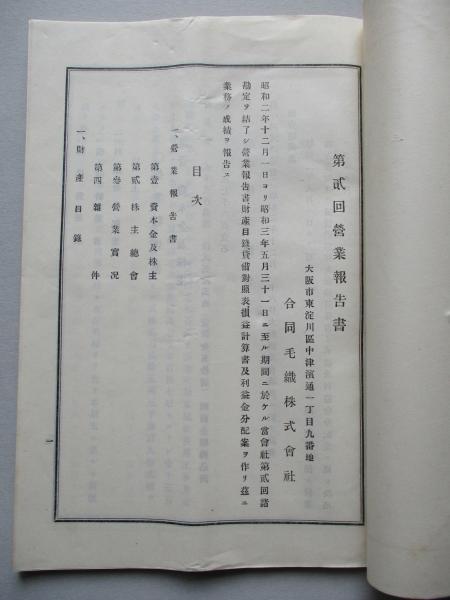 第貳回營業報告書
大阪市東淀川區中津濱通一丁目九番地
合同毛織株式會社
昭和二年十二月一日ヨリ昭和三年五月三十一日ニ至ル期間ニ於ケル當會社第貳回諸
勘定ヲ結了シ營業報告書財產目錄貸借對照表損益計算書及利益金分配案ヲ作リ茲ニ
業務ノ成績ヲ報告ス
目次
一、營業報告書
第壹 資本金及株主
第貳 株主總會
第參 營業實況
第四 雜件
一、財產目錄
一